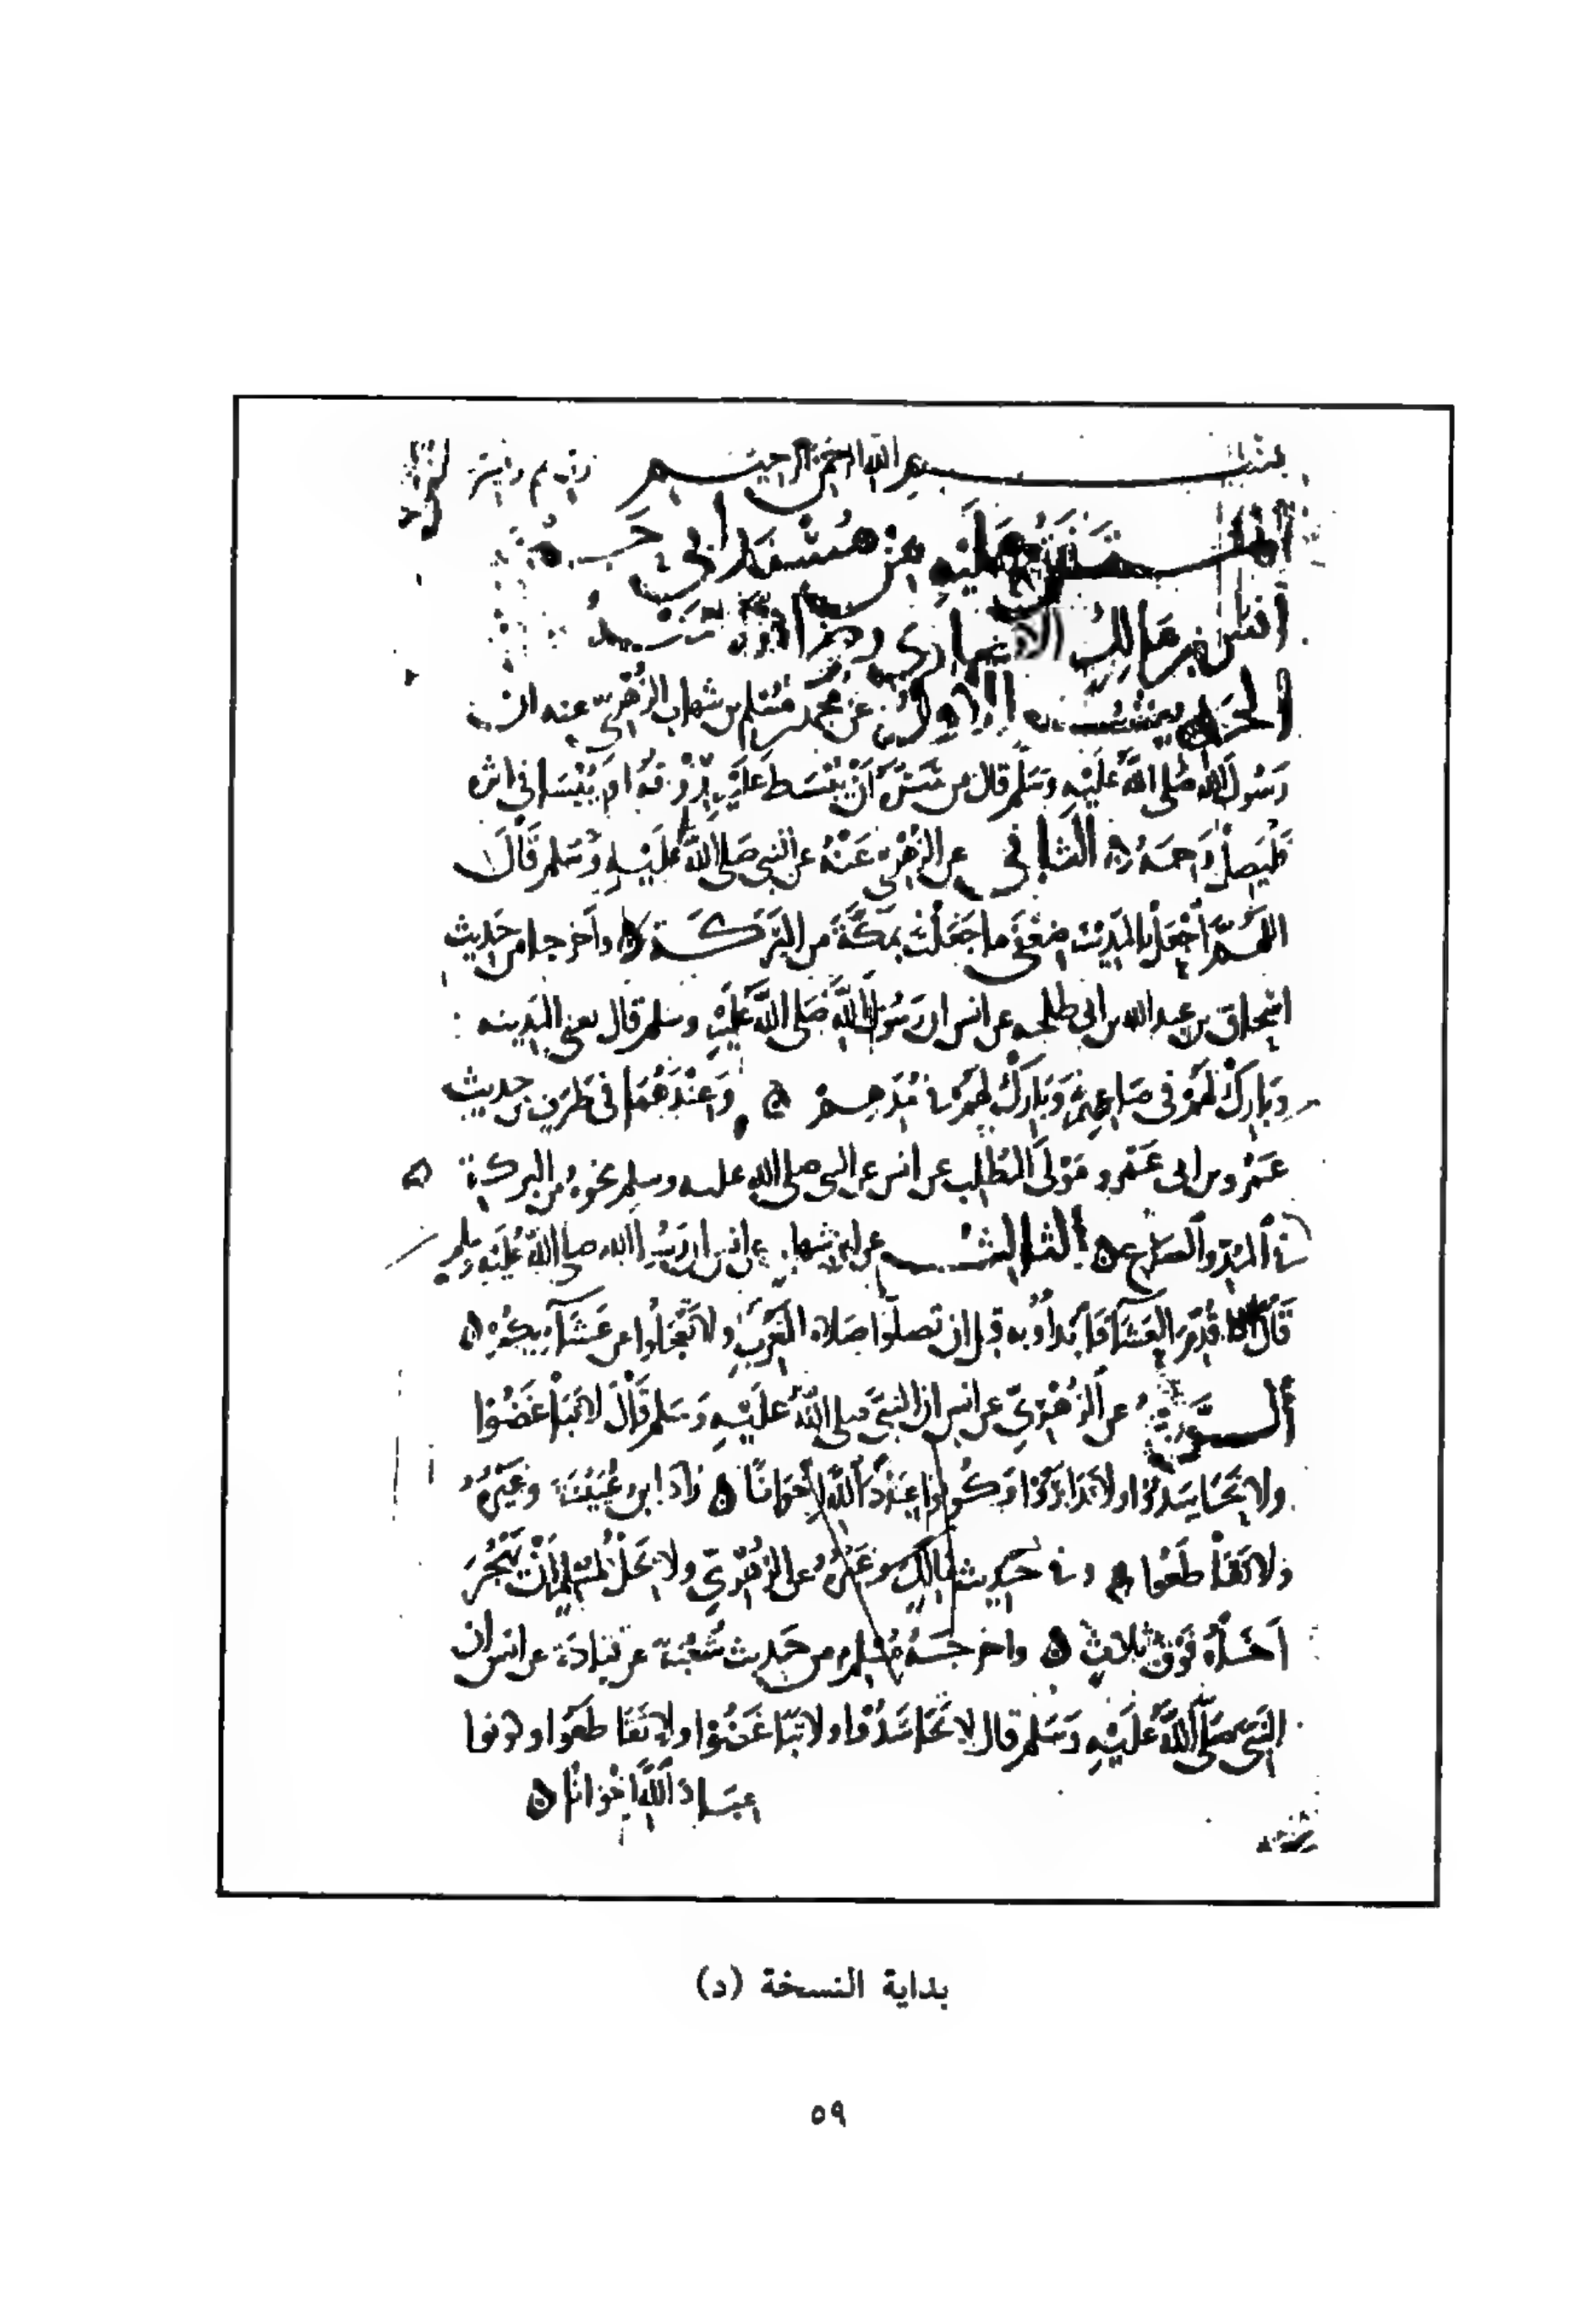 بسم الله الرحمن الرحيم
المتفق عليه من مسند أبي حمزة
أنس بن مالك الأنصاري
الحديث الأول عن محمد بن مسلم بن شهاب الزهري عنه ان
رسول الله صلى الله عليه وسلم قال من سره أن يبسط عليه رزقه أو ينسا في اثره
فليصل رحمه الثاني عن الزهري عنه عن النبي صلى الله عليه وسلم قال
اللهم اجعل بالمدينة ضعفي ما جعلت بمكة من البركة واخرجا من حديث
اسحاق بن عبد الله بن ابي طلحه عن انس ان رسول الله صلى الله عليه وسلم قال يعني المدينه
وبارك لهم في صاعهم وبارك لهم في مدهم وعندهما في طرف من حديث
عمرو بن ابي عمرو مولى المطلب عن انس عن النبي صلى الله عليه وسلم نحوه من البركة
في المد والصاع الثالث عن ابن شهاب عن انس ان رسول الله صلى الله عليه وسلم
قال اذا قدم العشا فابدأوا به قبل ان تصلوا صلاه المغرب ولا تعجلوا عن عشائكم
الرابع عن الزهري عن انس ان النبي صلى الله عليه وسلم قال لا تباغضوا
ولا تحاسدوا ولا تدابروا وكونوا عباد الله اخوانا زاد ابن عيينة وغيره
ولا تقاطعوا وفي حديث مالك وغيره عن الزهري ولا يحل لمسلم أن يهجر
أخاه فوق ثلاث واخرجه مسلم من حديث شعبة عن قتادة عن انس ان
النبي صلى الله عليه وسلم قال لا تحاسدوا ولا تباغضوا ولا تقاطعوا وكونوا
عباد الله إخوانا
بداية النسخة (د)
٥٩